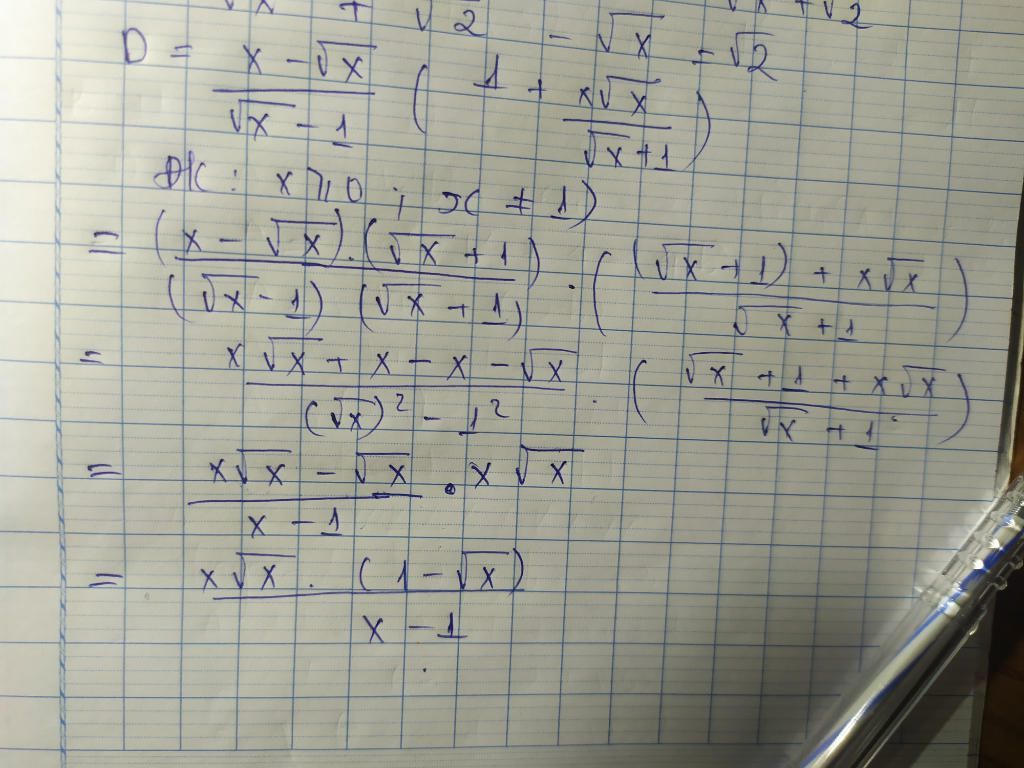 √x + √2 √x + √2
D = (x - √x)/(√x - 1) ( 1 + (x√x)/(√x + 1) ) - √x = √2
ĐK : x ⩾ 0 ; x ≠ 1)
= ((x - √x).(√x + 1))/((√x - 1) (√x + 1)) . ( ((√x + 1) + x√x)/(√x + 1) )
= (x√x + x - x - √x)/((√x)² - 1²) . ( (√x + 1 + x√x)/(√x + 1) )
= (x√x - √x)/(x - 1) . x √x
= (x√x . (1 - √x))/(x - 1)